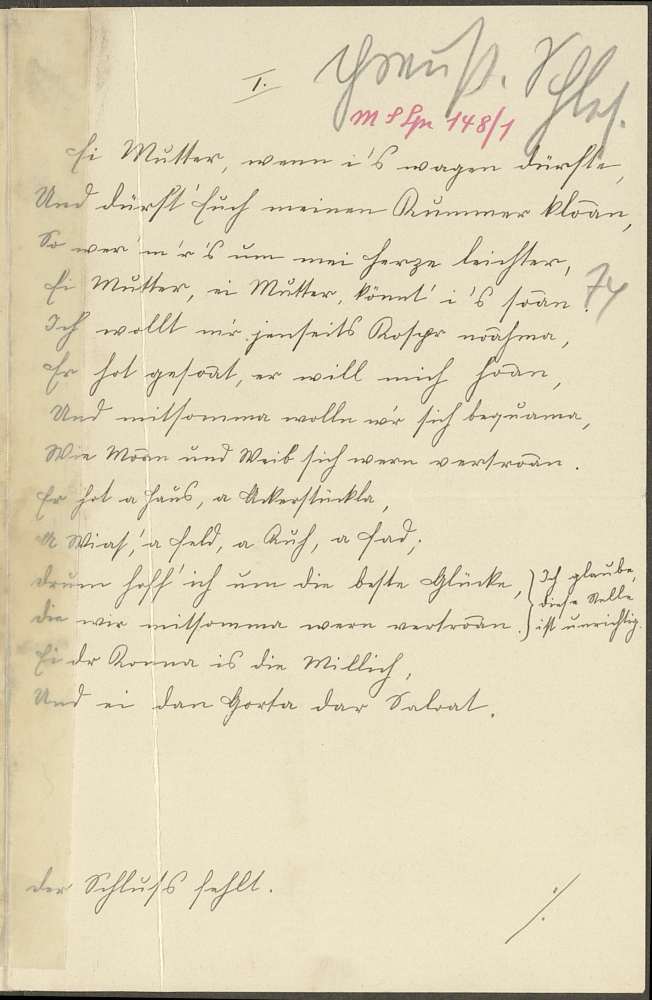 I.
Preuß. Schles.
148/1
Ei Mutter, wenn i's wagen dürfte,
Und dürft' Euch meinen Kummer kloan,
So wer' m'r's um mei Herze leichter,
Ei Mutter, ei Mutter, könnt' i's soan!
74
Ich wollt mir jenseits noahma,
Er hot gesoat, er will mich hoan,
Und mitsomma wolln wir sich bequama,
Wie Moan und Weib sich wern vertroan.
Er hot a Haus, a Ackerstückla,
A Wias', a Feld, a Kuh, a Fad;
Drum hoff' ich um die beste Glücke,
Die wir mitsomma wern vertroan.
Ich glaube,
diese Stelle
ist unrichtig.
Ei dr Konna is die Millich,
Und ei dan Gorta dar Saloat.
Der Schluß fehlt.
./.